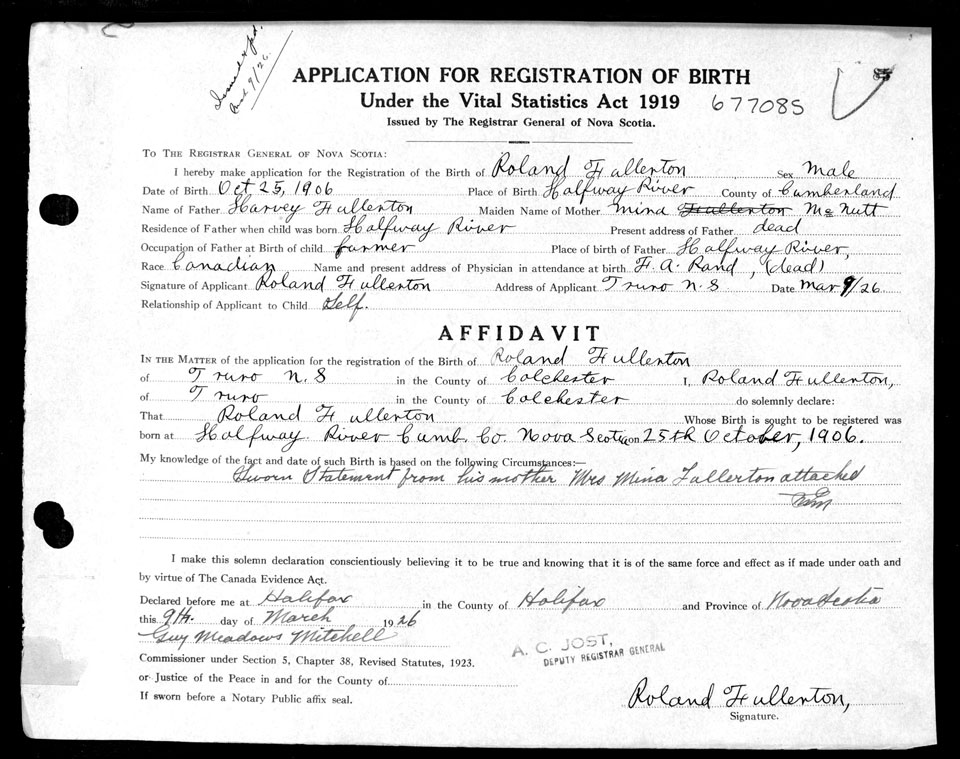 Issued
9/26.
APPLICATION FOR REGISTRATION OF BIRTH
Under the Vital Statistics Act 1919 677085
Issued by The Registrar General of Nova Scotia.
TO THE REGISTRAR GENERAL OF NOVA SCOTIA:
I hereby make application for the Registration of the Birth of Roland Fullerton Sex Male
Date of Birth Oct 25, 1906 Place of Birth Halfway River County of Cumberland
Name of Father Harvey Fullerton Maiden Name of Mother Mina Fullerton McNutt
Residence of Father when child was born Halfway River Present address of Father dead
Occupation of Father at Birth of child farmer Place of birth of Father Halfway River,
Race Canadian Name and present address of Physician in attendance at birth F. A. Rand, (dead)
Signature of Applicant Roland Fullerton Address of Applicant Truro N. S Date Mar 9/26
Relationship of Applicant to Child Self.
AFFIDAVIT
IN THE MATTER of the application for the registration of the Birth of Roland Fullerton
of Truro N. S in the County of Colchester I, Roland Fullerton,
of Truro in the County of Colchester do solemnly declare:
That Roland Fullerton Whose Birth is sought to be registered was
born at Halfway River Cumb. Co. Nova Scotia on 25th October, 1906.
My knowledge of the fact and date of such Birth is based on the following Circumstances:—
Sworn Statement from his mother Mrs Mina Fullerton attached
I make this solemn declaration conscientiously believing it to be true and knowing that it is of the same force and effect as if made under oath and
by virtue of The Canada Evidence Act.
Declared before me at Halifax in the County of Halifax and Province of Nova Scotia
this 9th. day of March 1926
Guy Meadows Mitchell
A. C. JOST,
DEPUTY REGISTRAR GENERAL
Commissioner under Section 5, Chapter 38, Revised Statutes, 1923.
or Justice of the Peace in and for the County of
If sworn before a Notary Public affix seal.
Roland Fullerton,
Signature.